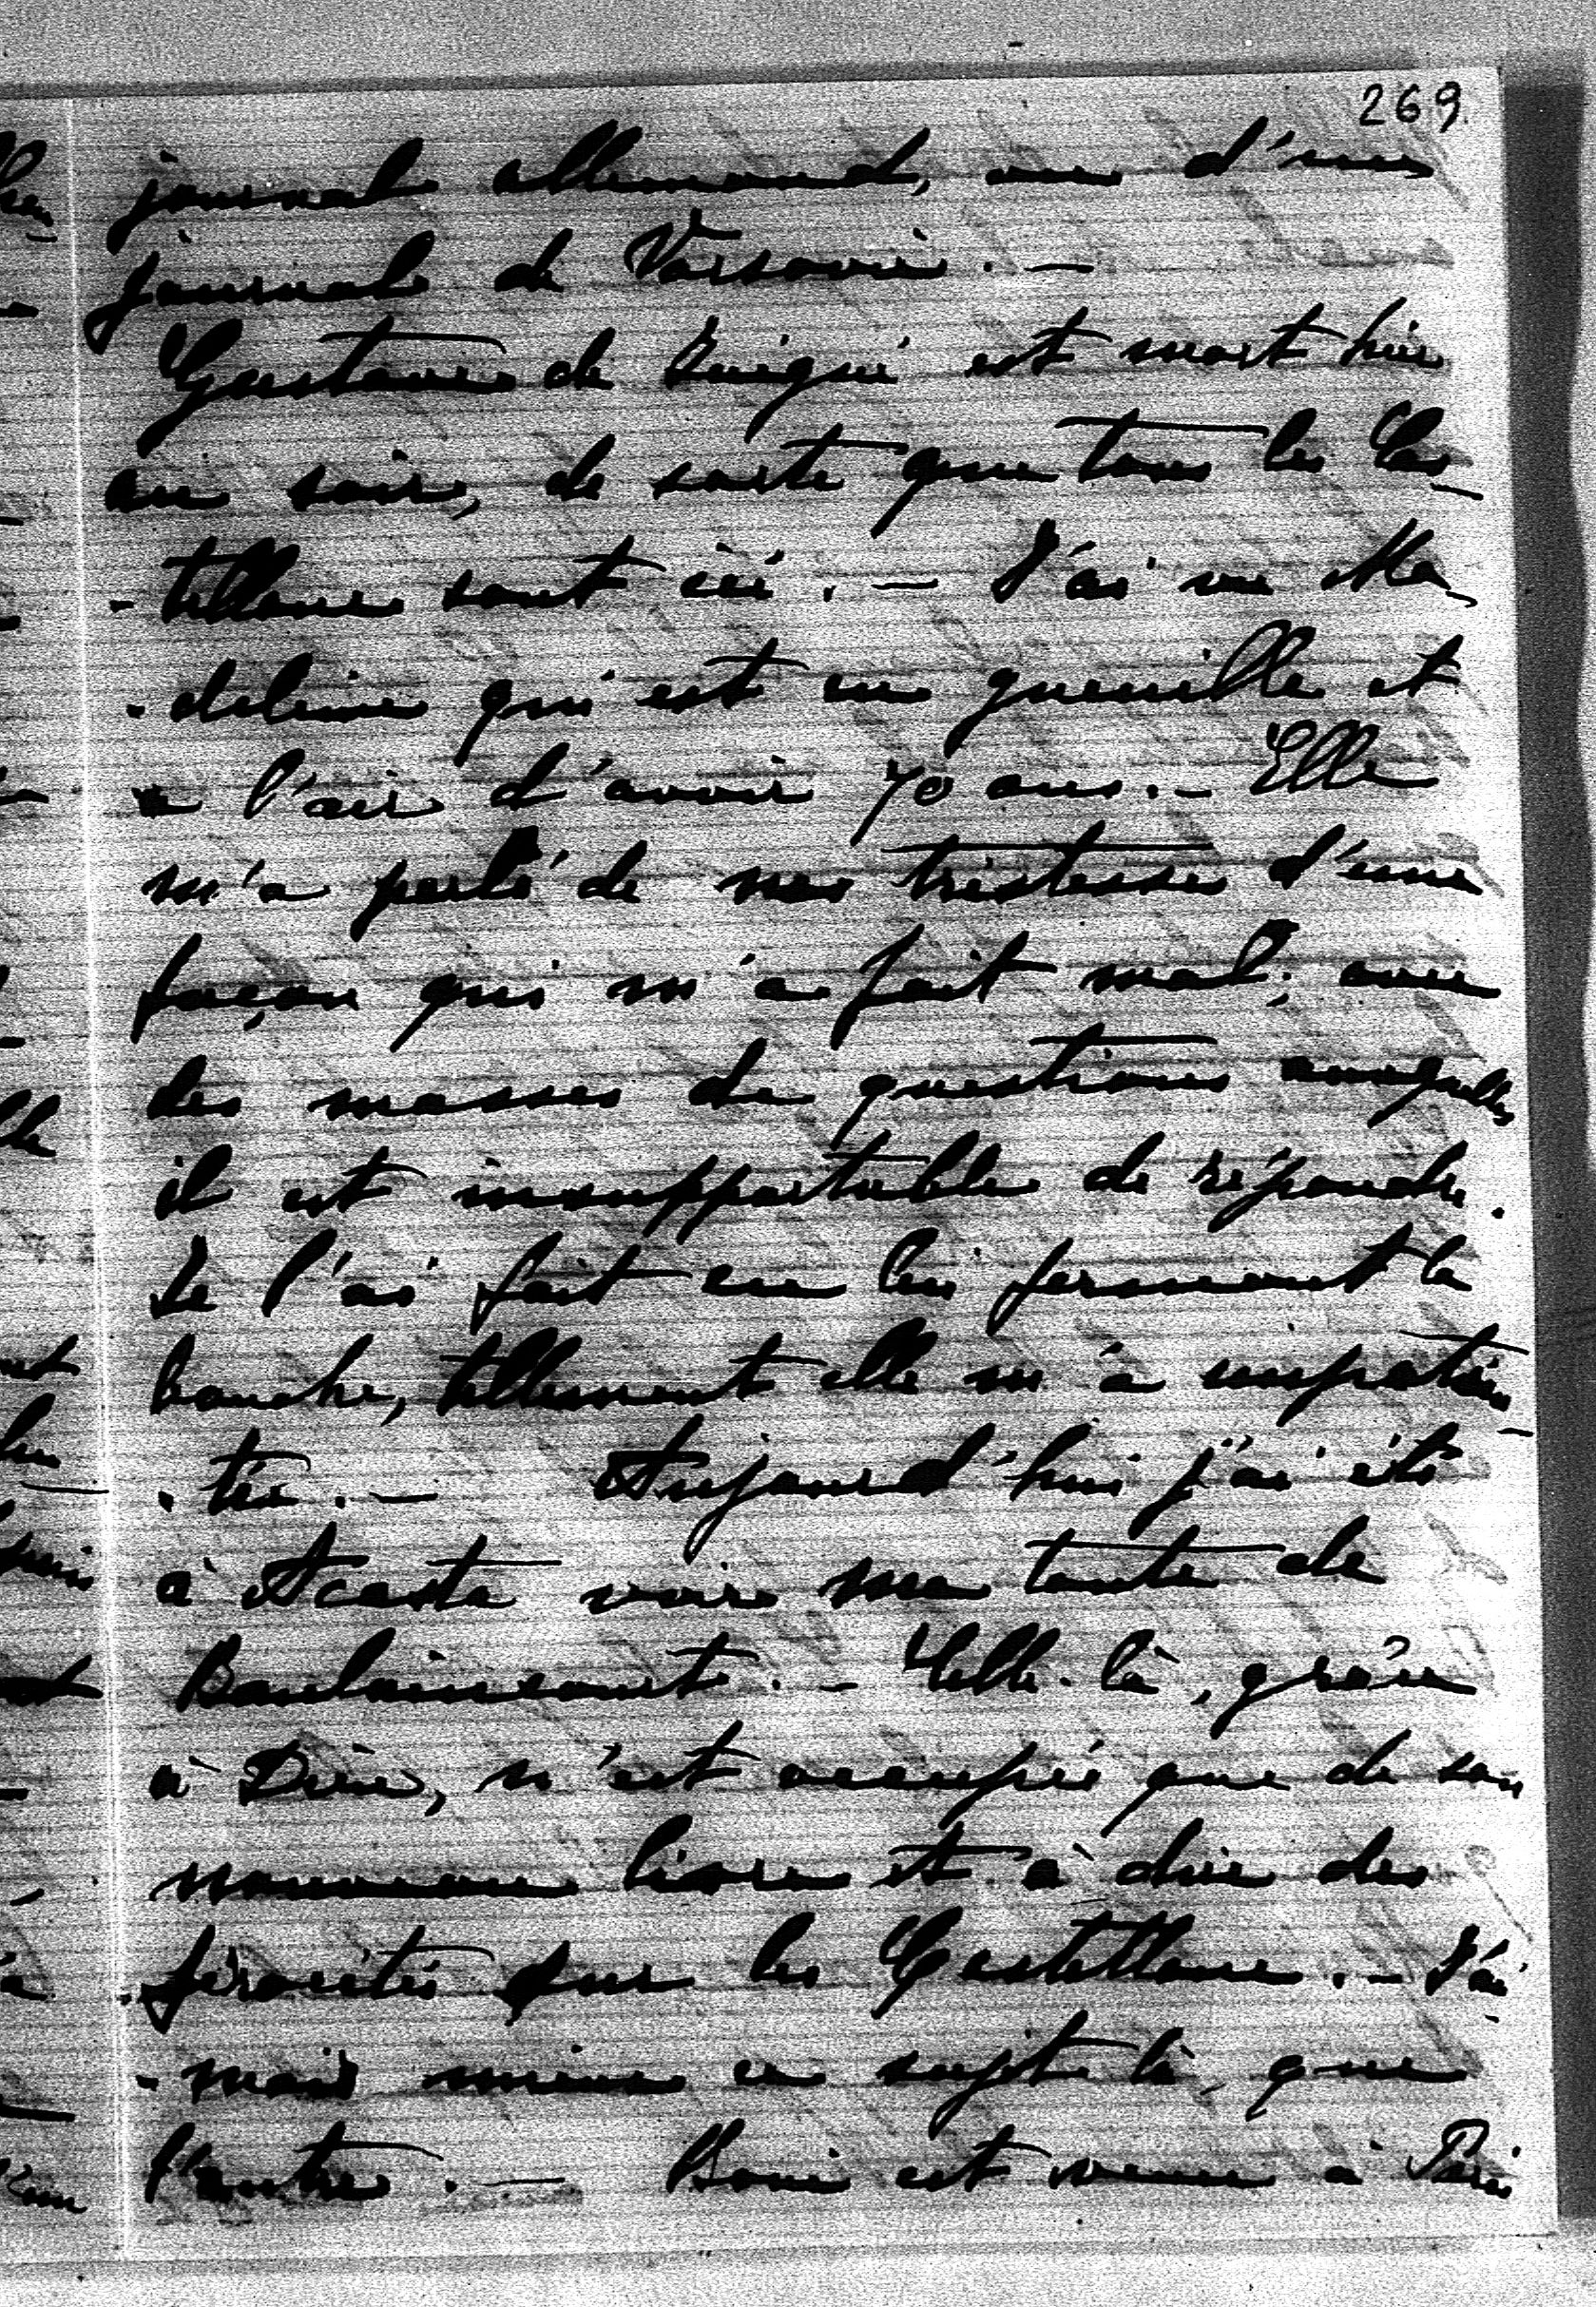 269.
journal allemand, ou d'un
journal de Varsovie. —
Gustave de Juigné est mort hier
au soir, de sorte que tous les Cas-
-tellane sont ici. — J'ai vu Ma-
-deleine qui est en guenille et
a l'air d'avoir 70 ans. — Elle
m'a parlé de nos tristesses d'une
façon qui m'a fait mal; avec
des masses de questions auxquelles
il est insupportable de répondre.
Je l'ai fait en lui fermant la
bouche, tellement elle m'a impatien-
-tée. — Aujourd'hui j'ai été
à Acosta voir ma tante de
Beaulaincourt. — Celle-là, grâce
à Dieu, n'est occupée que de son
nouveau livre et à dire des
férocités sur les Castellane. — J'ai-
-mais mieux ce sujet là, que
l'autre. — Boni est venu à Paris